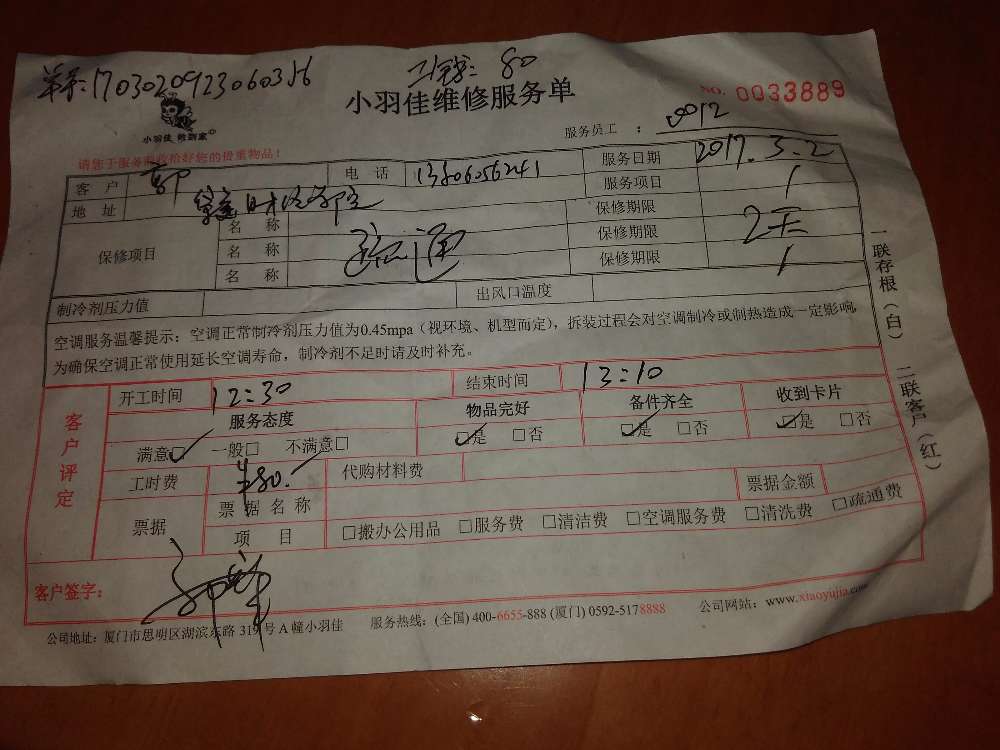 单号: 170302092306035
工钱: 80
小羽佳维修服务单
NO. 0033889
小羽佳 修到家
服务员工 : 0012
请您于服务前收拾好您的贵重物品!
客 户 郭 电 话 服务日期 2017.3.2
地 址 服务项目 /
保修项目 名 称 保修期限
名 称 疏通 保修期限 2天
名 称 保修期限 /
制冷剂压力值 出风口温度
空调服务温馨提示: 空调正常制冷剂压力值为0.45mpa (视环境、机型而定), 拆装过程会对空调制冷或制热造成一定影响,
为确保空调正常使用延长空调寿命, 制冷剂不足时请及时补充。
客户评定
开工时间 12:30 结束时间 13:10
服务态度 物品完好 备件齐全 收到卡片
满意☑ 一般□ 不满意□ ☑是 □否 ☑是 □否 ☑是 □否
工时费 ¥80.— 代购材料费
票据 票据名称 票据金额
项 目 □搬办公用品 □服务费 □清洁费 □空调服务费 □清洗费 □疏通费
客户签字:
公司地址: 厦门市思明区湖滨东路 319 号 A 幢小羽佳 服务热线: (全国) 400-6655-888 (厦门) 0592-5178888 公司网站: www.xiaoyujia.com
一联存根(白) 二联客户(红)